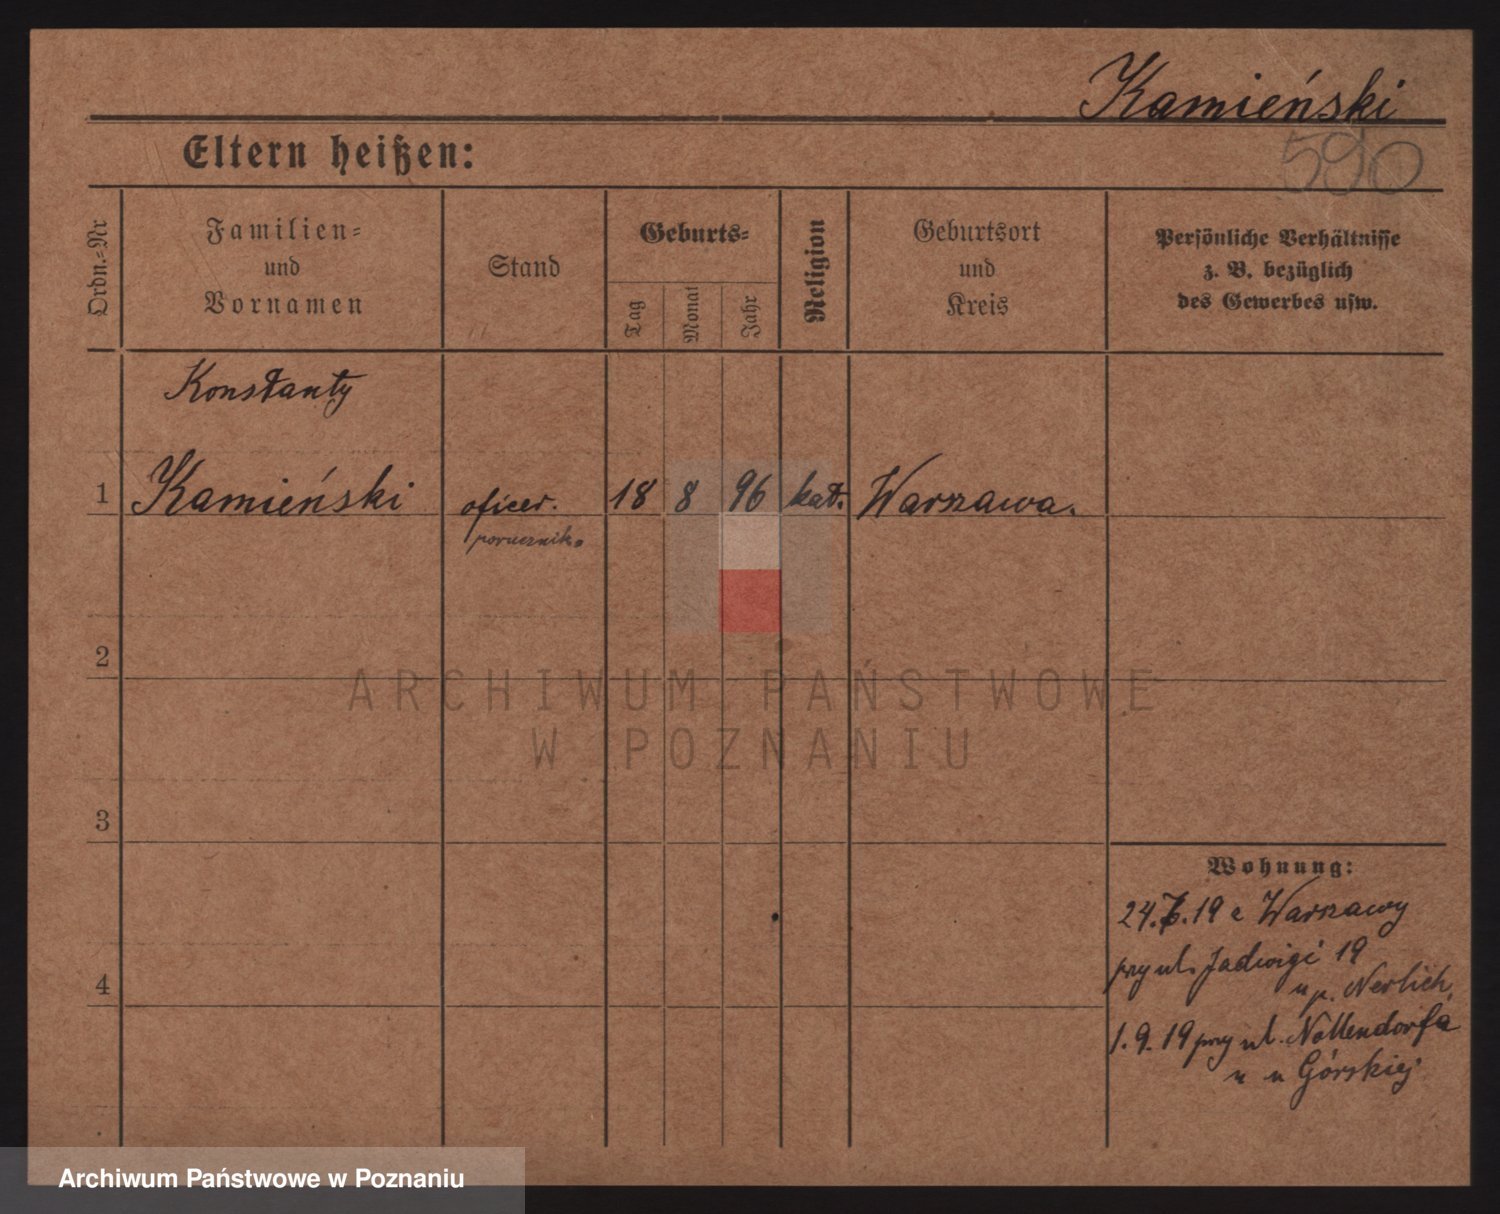 Kamieński
590
Eltern heißen:
Ordn.-Nr
Familien-
und
Vornamen
Stand
Geburts-
Tag
Monat
Jahr
Religion
Geburtsort
und
Kreis
Persönliche Verhältnisse
z. B. bezüglich
des Gewerbes usw.
Konstanty
1 Kamieński oficer. 18 8 96 kat. Warszawa.
porucznik.
2
ARCHIWUM PAŃSTWOWE
W POZNANIU
3
Wohnung:
24.7.19 z Warszawy
przy ul. Jadwigi 19
u p. Nerlich,
4
1.9.19 przy ul. Nollendorfa
u Górskiej
Archiwum Państwowe w Poznaniu